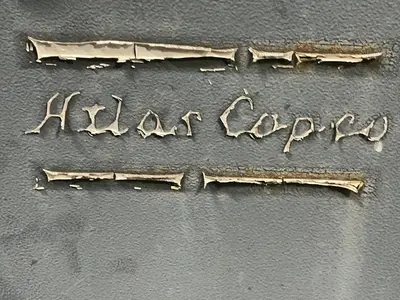 Atlas Copco